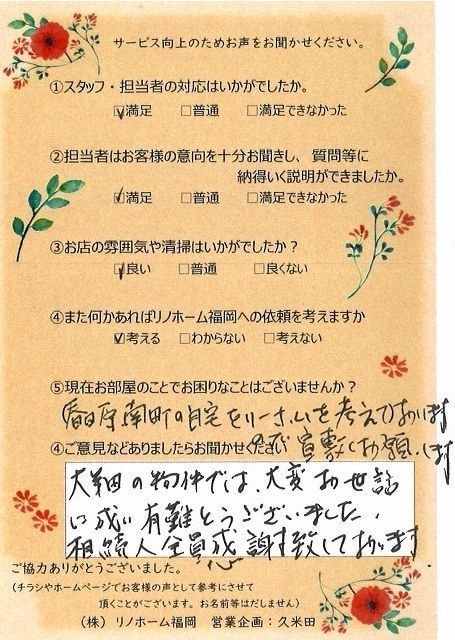 サービス向上のためお声をお聞かせください。
①スタッフ・担当者の対応はいかがでしたか。
☑満足 □普通 □満足できなかった
②担当者はお客様の意向を十分お聞きし、質問等に
納得いく説明ができましたか。
☑満足 □普通 □満足できなかった
③お店の雰囲気や清掃はいかがでしたか？
☑良い □普通 □良くない
④また何かあればリノホーム福岡への依頼を考えますか
☑考える □わからない □考えない
⑤現在お部屋のことでお困りなことはございませんか？
原南町の自宅をリーホームを考えております
④ご意見などありましたらお聞かせください
ので宜敷くお願いします
大牟田の物件では、大変お世話
に成り有難とうございました。
相続人全員感謝致しております。
ご協力ありがとうございました。
（チラシやホームページでお客様の声として参考にさせて
頂くことがございます。お名前等はだしません）
（株）リノホーム福岡 営業企画：久米田